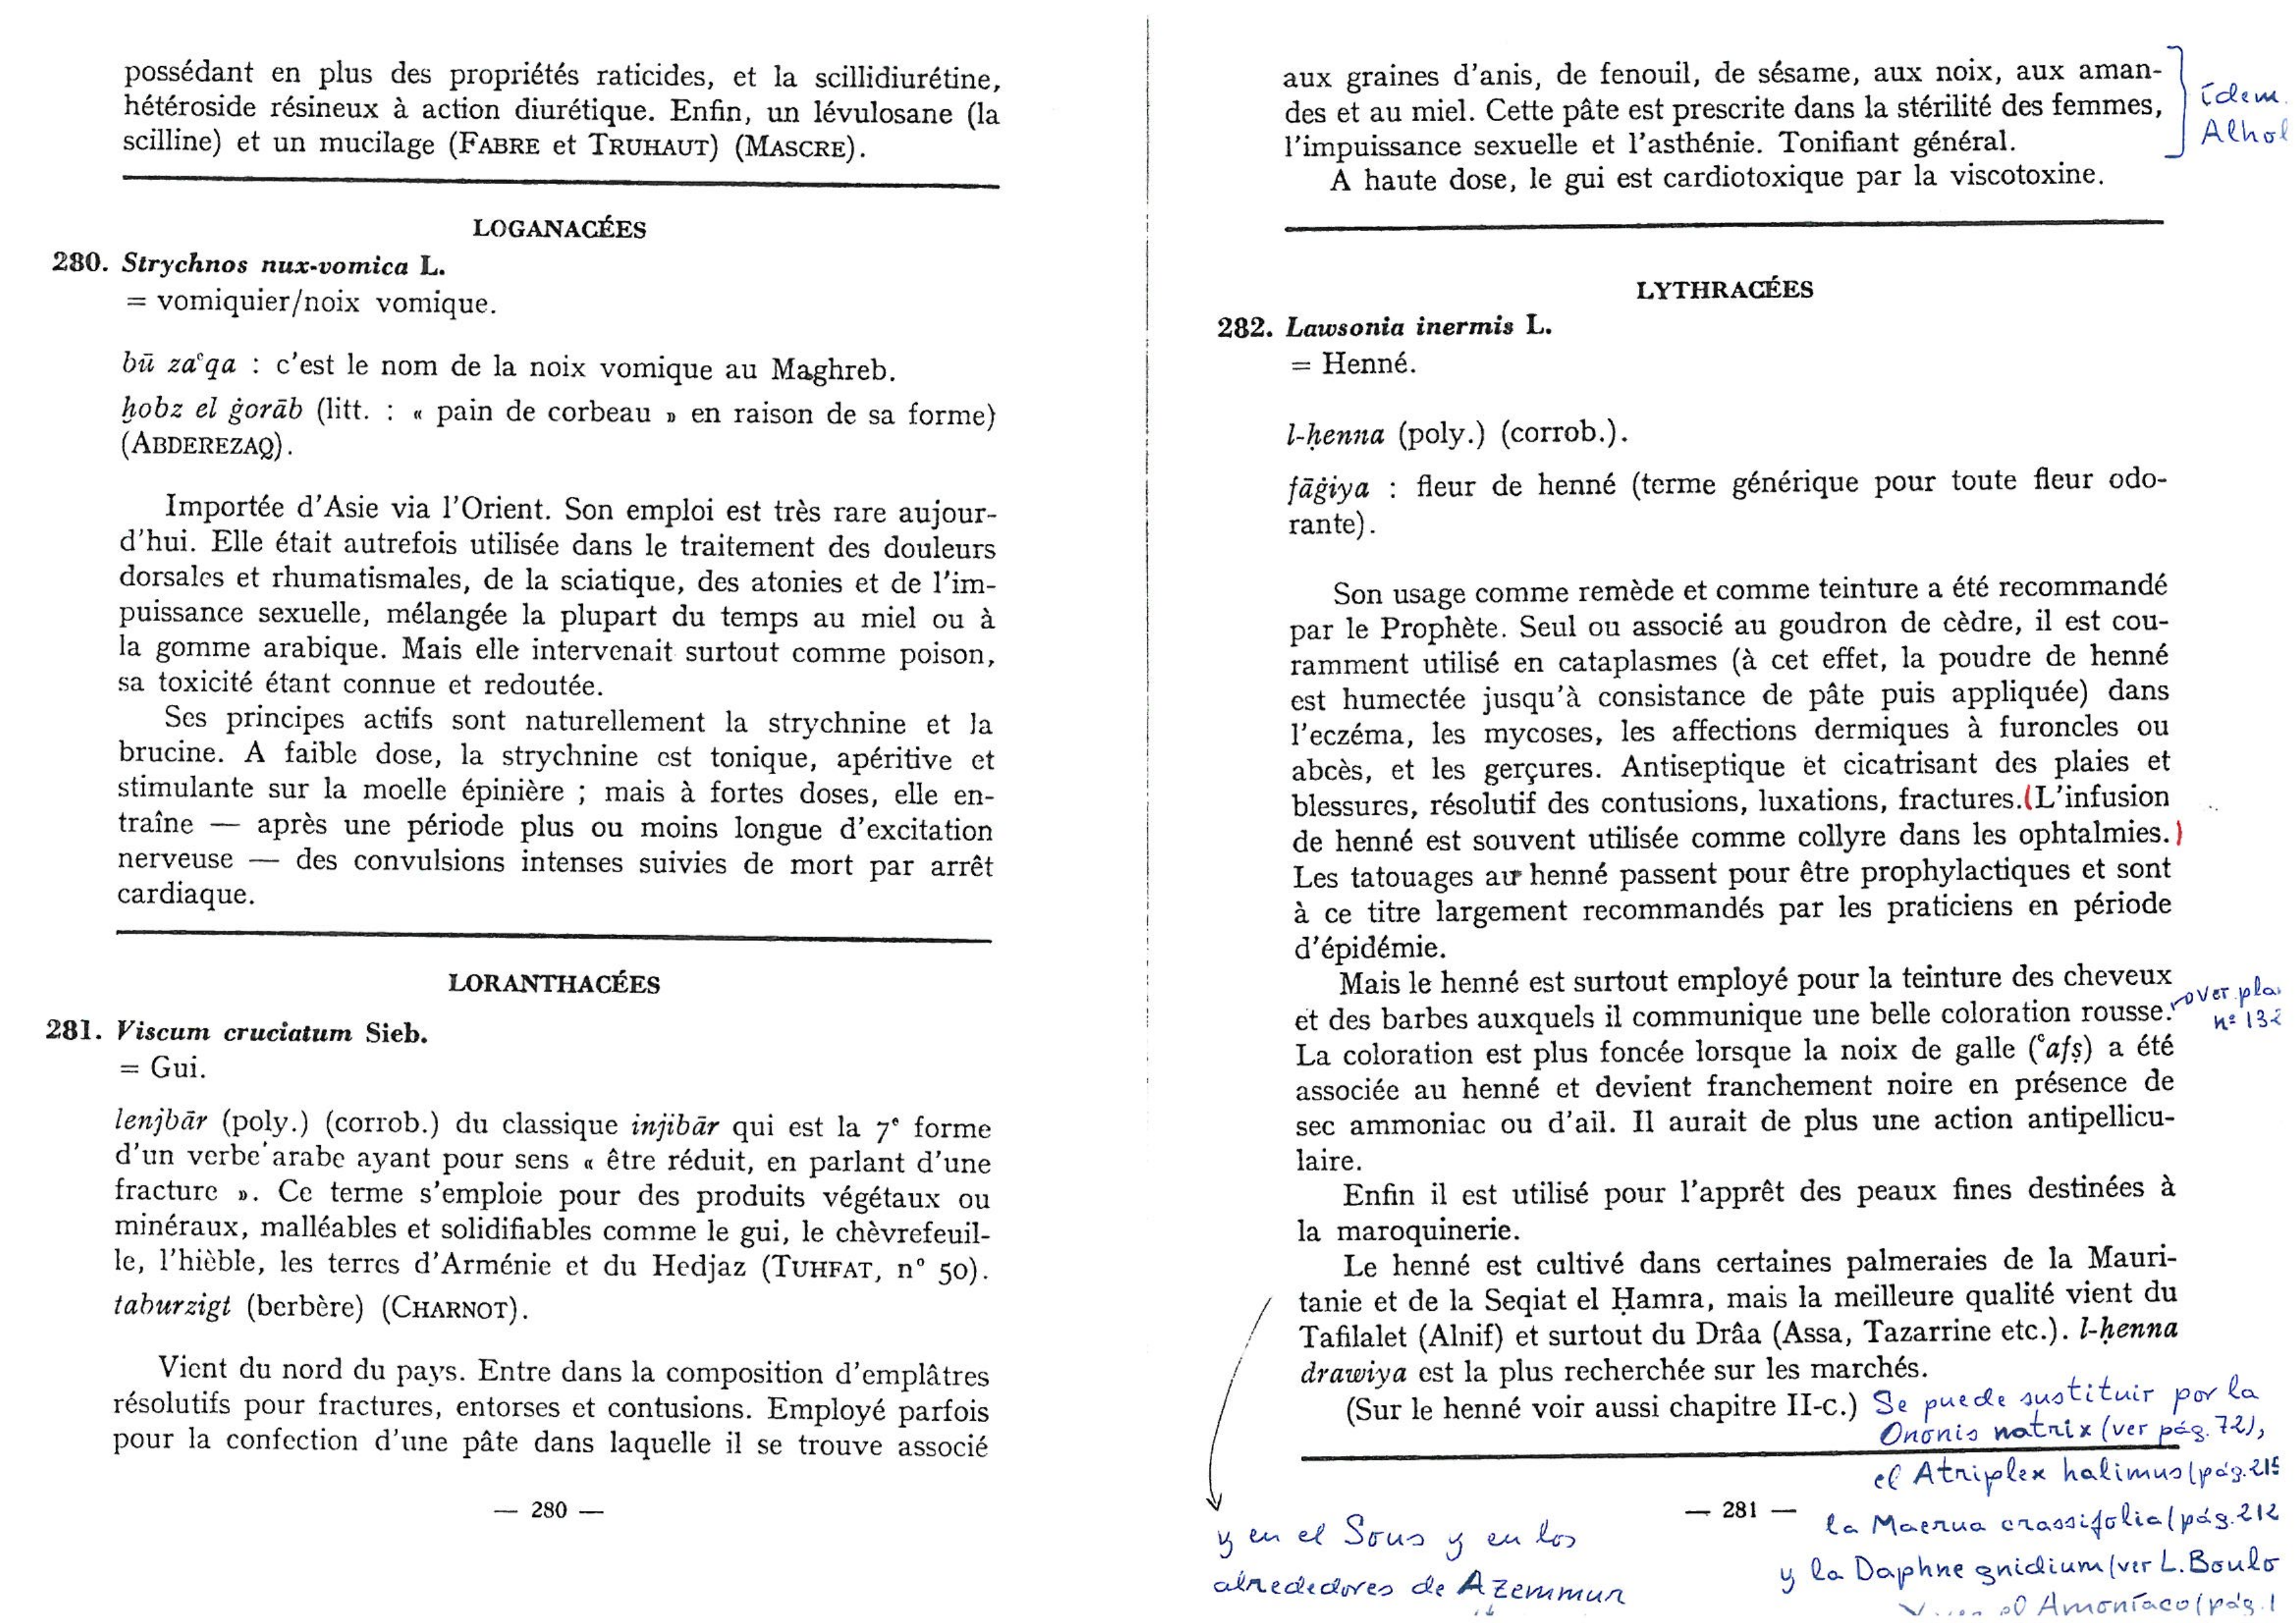 possédant en plus des propriétés raticides, et la scillidiurétine,
hétéroside résineux à action diurétique. Enfin, un lévulosane (la
scilline) et un mucilage (FABRE et TRUHAUT) (MASCRE).
LOGANACÉES
280. Strychnos nux-vomica L.
= vomiquier/noix vomique.
bū zaʿqa : c'est le nom de la noix vomique au Maghreb.
ḫobz el ġorāb (litt. : « pain de corbeau » en raison de sa forme)
(ABDEREZAQ).
Importée d'Asie via l'Orient. Son emploi est très rare aujour-
d'hui. Elle était autrefois utilisée dans le traitement des douleurs
dorsales et rhumatismales, de la sciatique, des atonies et de l'im-
puissance sexuelle, mélangée la plupart du temps au miel ou à
la gomme arabique. Mais elle intervenait surtout comme poison,
sa toxicité étant connue et redoutée.
Ses principes actifs sont naturellement la strychnine et la
brucine. A faible dose, la strychnine est tonique, apéritive et
stimulante sur la moelle épinière ; mais à fortes doses, elle en-
traîne — après une période plus ou moins longue d'excitation
nerveuse — des convulsions intenses suivies de mort par arrêt
cardiaque.
LORANTHACÉES
281. Viscum cruciatum Sieb.
= Gui.
lenjbār (poly.) (corrob.) du classique injibār qui est la 7e forme
d'un verbe arabe ayant pour sens « être réduit, en parlant d'une
fracture ». Ce terme s'emploie pour des produits végétaux ou
minéraux, malléables et solidifiables comme le gui, le chèvrefeuil-
le, l'hièble, les terres d'Arménie et du Hedjaz (TUHFAT, n° 50).
taburzigt (berbère) (CHARNOT).
Vient du nord du pays. Entre dans la composition d'emplâtres
résolutifs pour fractures, entorses et contusions. Employé parfois
pour la confection d'une pâte dans laquelle il se trouve associé
— 280 —
aux graines d'anis, de fenouil, de sésame, aux noix, aux aman-
des et au miel. Cette pâte est prescrite dans la stérilité des femmes,
l'impuissance sexuelle et l'asthénie. Tonifiant général.
A haute dose, le gui est cardiotoxique par la viscotoxine.
idem.
Alhol
LYTHRACÉES
282. Lawsonia inermis L.
= Henné.
l-ḥenna (poly.) (corrob.).
fāġiya : fleur de henné (terme générique pour toute fleur odo-
rante).
Son usage comme remède et comme teinture a été recommandé
par le Prophète. Seul ou associé au goudron de cèdre, il est cou-
ramment utilisé en cataplasmes (à cet effet, la poudre de henné
est humectée jusqu'à consistance de pâte puis appliquée) dans
l'eczéma, les mycoses, les affections dermiques à furoncles ou
abcès, et les gerçures. Antiseptique et cicatrisant des plaies et
blessures, résolutif des contusions, luxations, fractures.(L'infusion
de henné est souvent utilisée comme collyre dans les ophtalmies.)
Les tatouages au henné passent pour être prophylactiques et sont
à ce titre largement recommandés par les praticiens en période
d'épidémie.
Mais le henné est surtout employé pour la teinture des cheveux
et des barbes auxquels il communique une belle coloration rousse.
ver pla
nº 132
La coloration est plus foncée lorsque la noix de galle (ʿafṣ) a été
associée au henné et devient franchement noire en présence de
sec ammoniac ou d'ail. Il aurait de plus une action antipellicu-
laire.
Enfin il est utilisé pour l'apprêt des peaux fines destinées à
la maroquinerie.
Le henné est cultivé dans certaines palmeraies de la Mauri-
tanie et de la Seqiat el Ḥamra, mais la meilleure qualité vient du
Tafilalet (Alnif) et surtout du Drâa (Assa, Tazarrine etc.). l-ḥenna
drawiya est la plus recherchée sur les marchés.
(Sur le henné voir aussi chapitre II-c.)
Se puede sustituir por la
Ononis natrix (ver pág. 72),
el Atriplex halimus (pág. 215
la Maerua crassifolia (pág. 212
y la Daphne gnidium (ver L. Boulo
el Amoníaco (pág. 1
— 281 —
y en el Sous y en los
alrededores de Azemmur